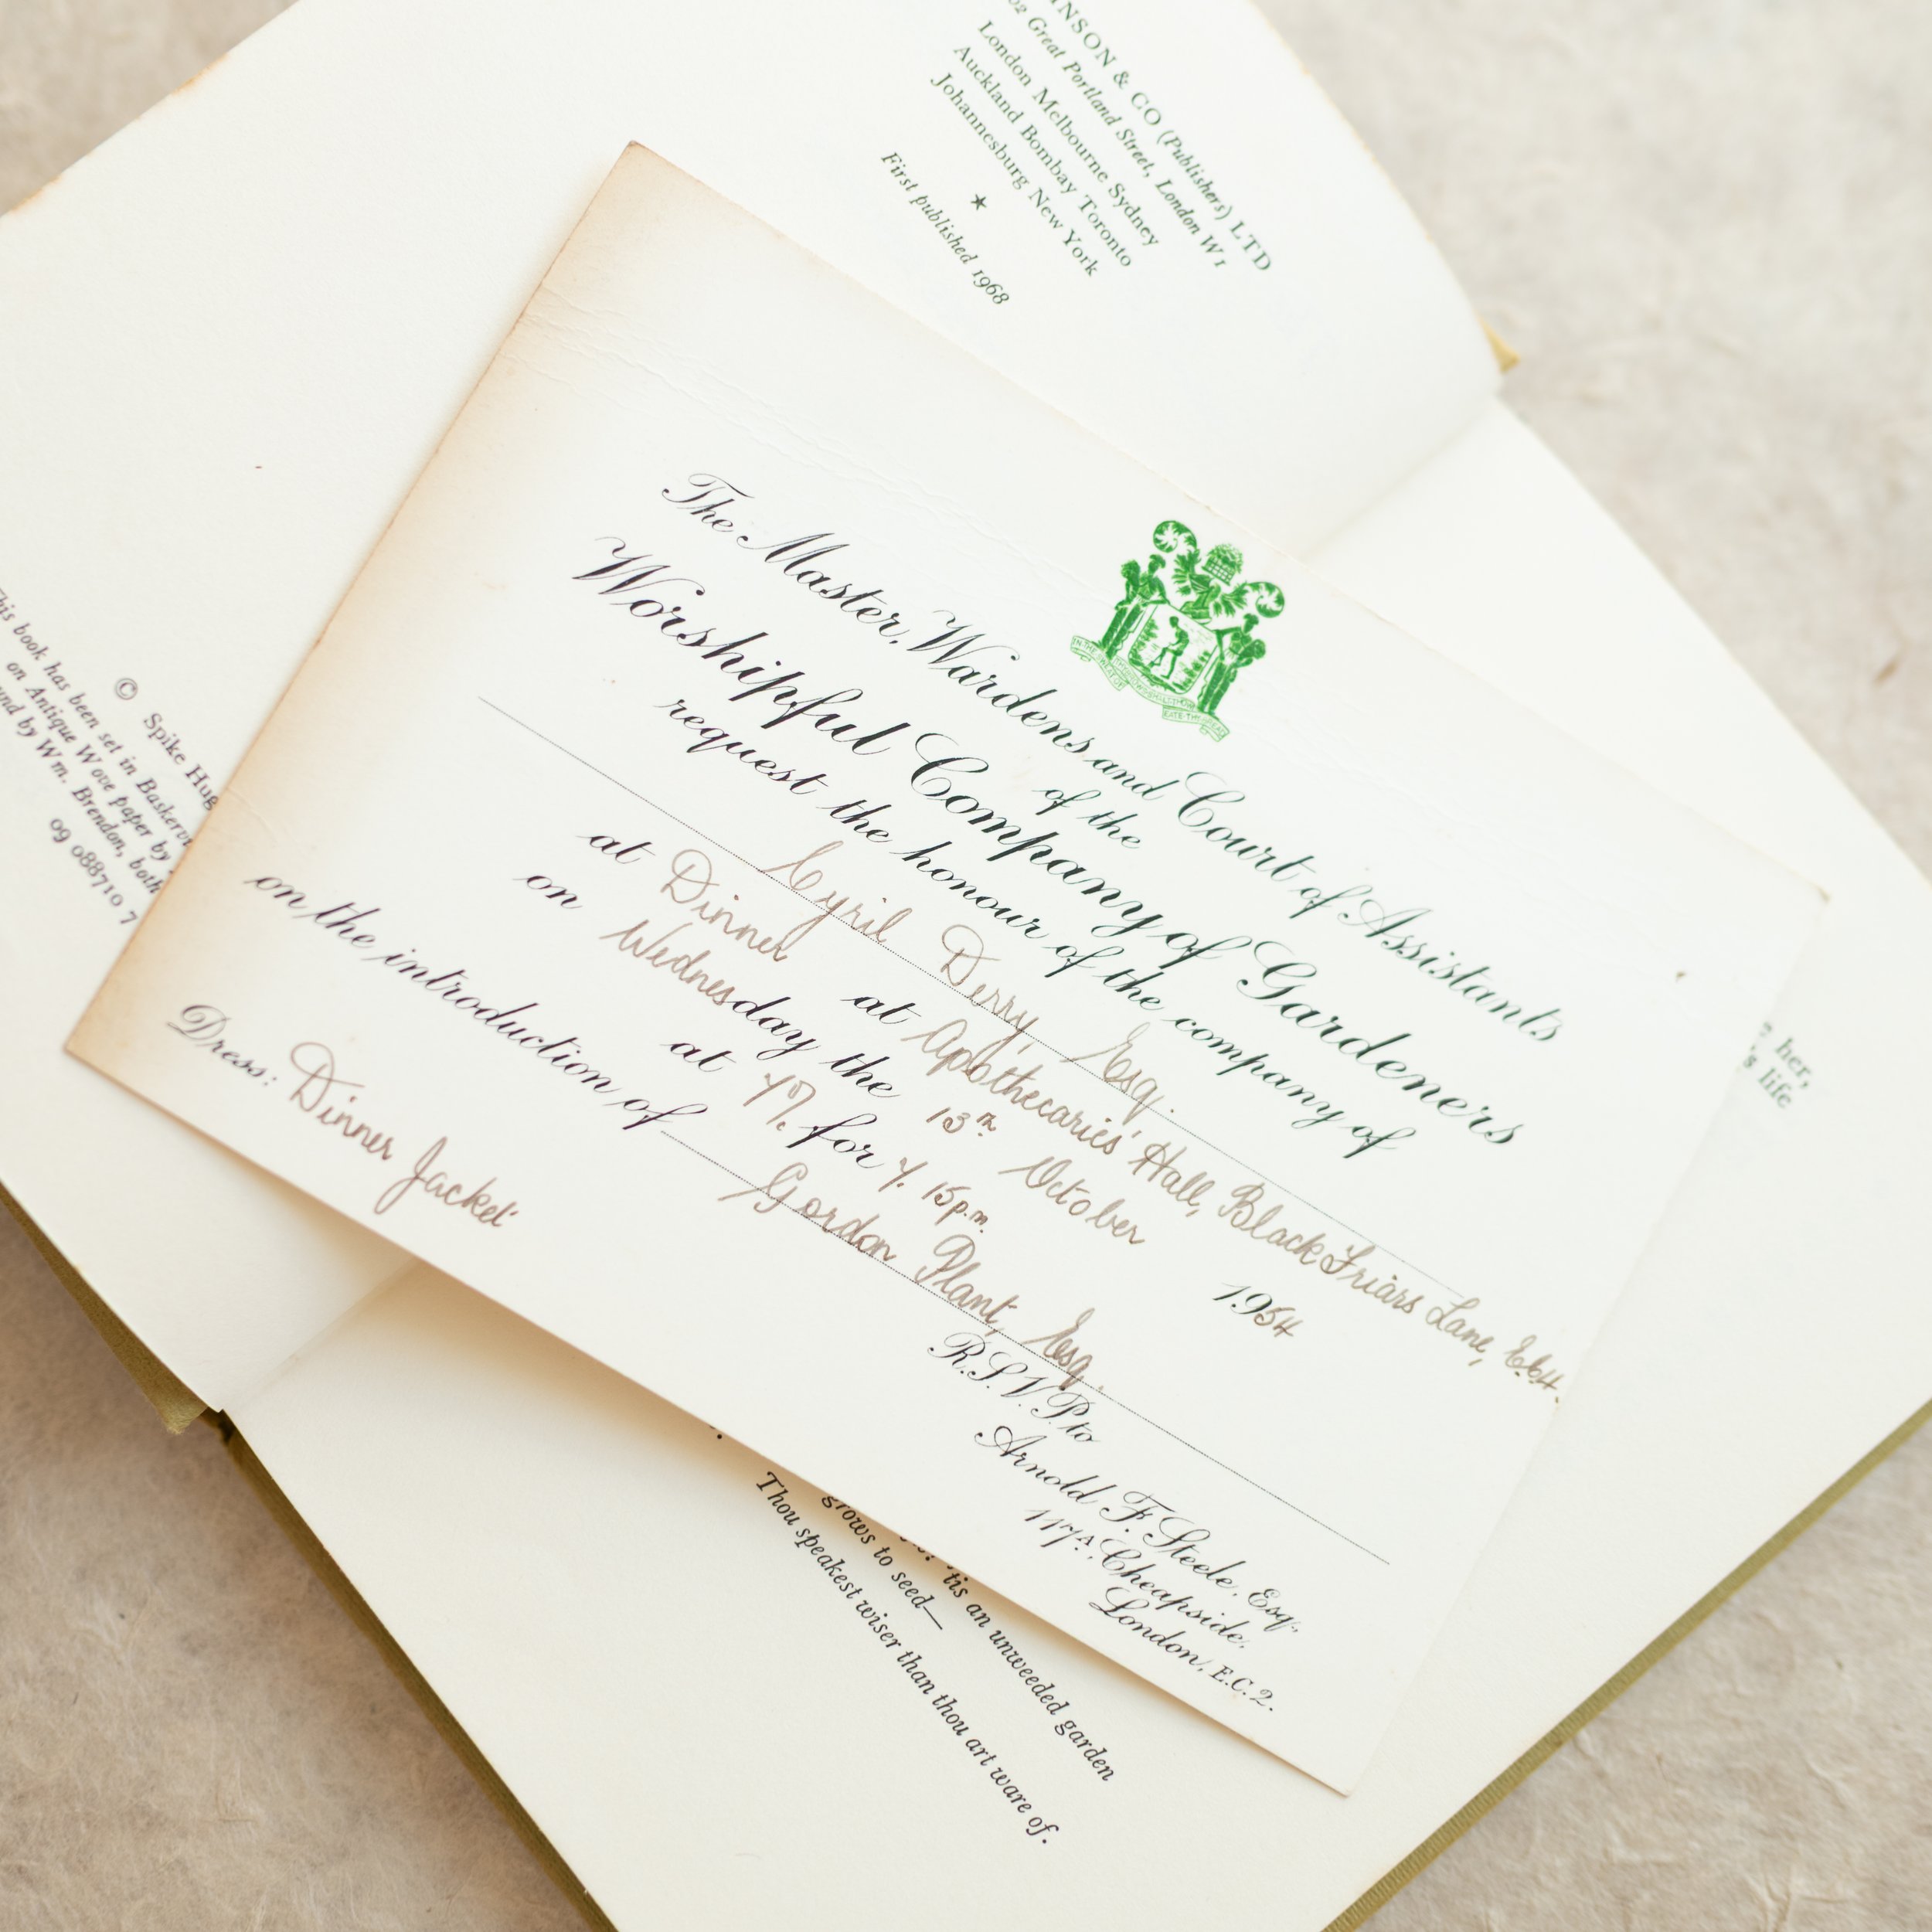 NSON & CO (Publishers) LTD
Great Portland Street, London W1
London Melbourne Sydney
Auckland Bombay Toronto
Johannesburg New York
★
First published 1968
©
Spike Hug
This book has been set in Baskerv
on Antique Wove paper by
und by Wm. Brendon, both
09 088710 7
The Master, Wardens and Court of Assistants
of the
Worshipful Company of Gardeners
request the honour of the company of
Cyril Derry, Esq.
at Dinner at Apothecaries' Hall, Black Friars Lane, E.C.4.
on Wednesday the 13th October 1954
at for 7.15p.m.
on the introduction of Gordon Plant, Esq.
Dress: Dinner Jacket
R.S.V.P. to
Arnold F. Steele, Esq.,
117A, Cheapside,
London, E.C.2.
her,
's life
'tis an unweeded garden
grows to seed—
Thou speakest wiser than thou art ware of.